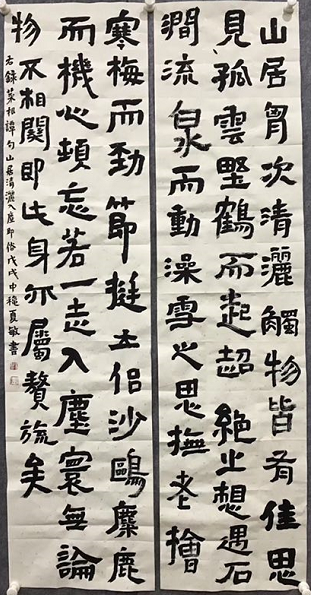 山居胷次清灑觸物皆有佳思
見孤雲野鶴而起超絕之想遇石
澗流泉而動澡雪之思撫老檜
寒梅而勁節挺立侶沙鷗麋鹿
而機心頓忘若一走入塵寰無論
物不相關即此身亦屬贅旒矣
右錄菜根譚句山居清灑入塵即俗戊戌中穐夏敏書